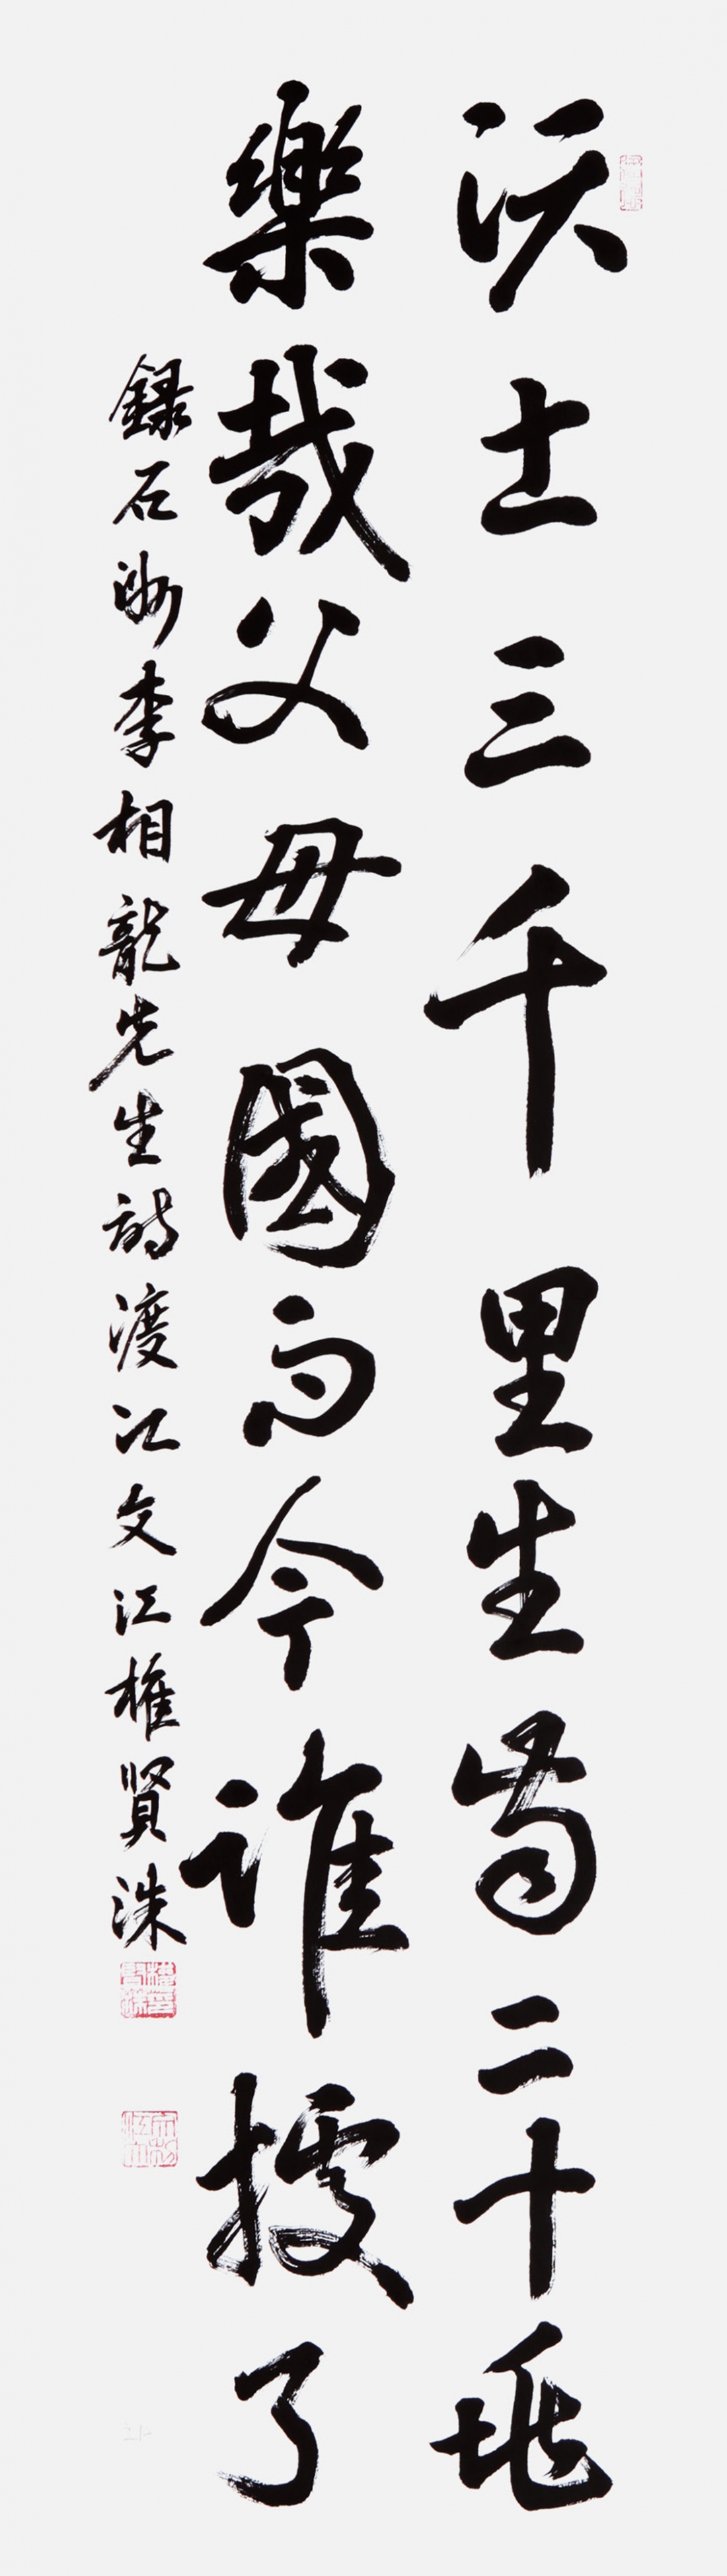 沃土三千里生齒二十垗
樂哉父母國而今誰據了
錄石洲李相龍先生詩渡江文江權賢洙